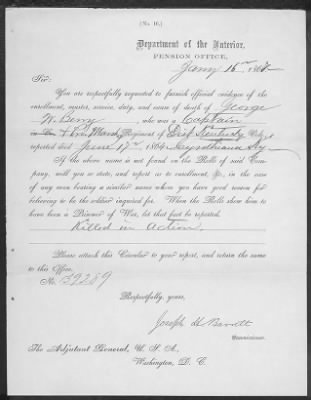 (No. 10.)
Department of the Interior,
PENSION OFFICE,
Jany 15", 186
Sir:
You are respectfully requested to furnish official evidence of the
enrollment, muster, service, duty, and cause of death of George
W. Berry, who was a Captain
in Regiment of Kentucky Vols,
reported died June 17", 1864 Cynthiana Ky
If the above name is not found on the Rolls of said Com-
pany, will you so state, and report as to enrollment, &c., in the case
of any man bearing a similar name whom you have good reason for
believing to be the soldier inquired for. When the Rolls show him to
have been a Prisoner of War, let that fact be reported.
Killed in Action.
Please attach this Circular to your report, and return the same
to this Office.
No. 39289
Respectfully, yours,
Joseph H. Barrett
Commissioner.
The Adjutant General, U. S. A.,
Washington, D. C.